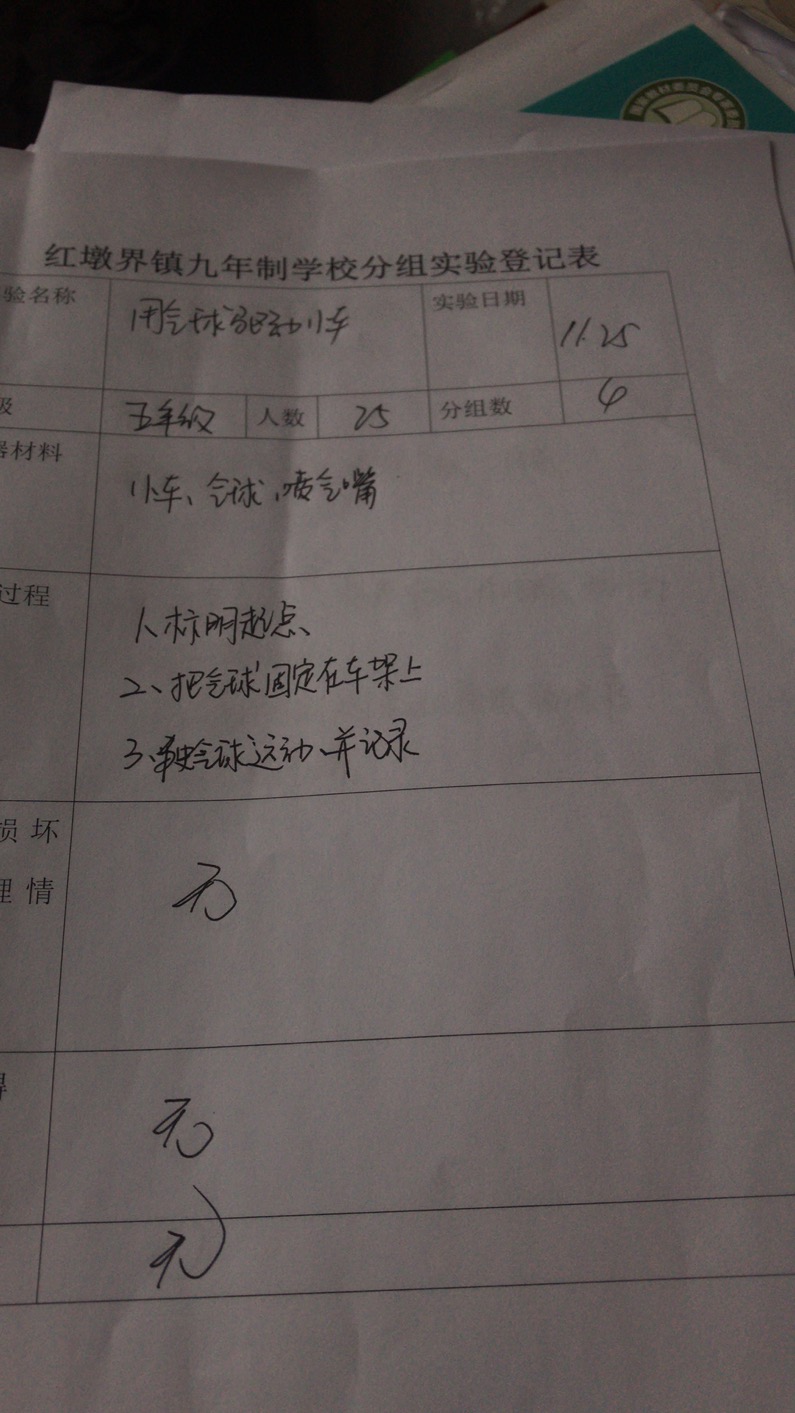 红墩界镇九年制学校分组实验登记表
验名称 用气球驱动小车 实验日期 11.25
级 五年级 人数 25 分组数 6
器材料 小车、气球、喷气嘴
过程 1、标明起点、
2、把气球固定在车架上
3、气球运动、并记录
损坏 无
理情
得 无
无